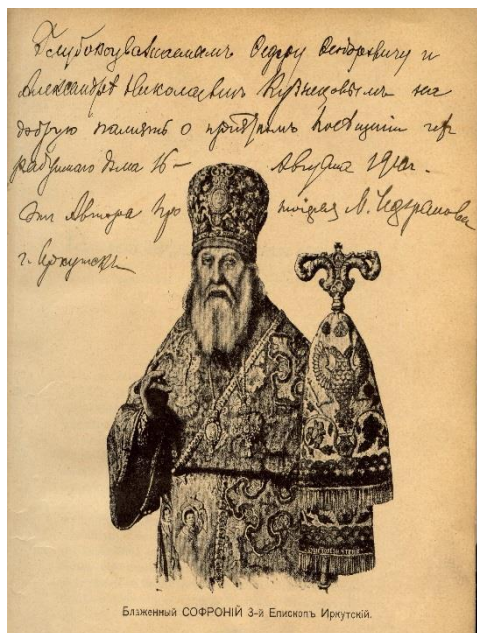 Глубокоуважаемымъ Ѳедору Ѳедоровичу и
Александрѣ Николаевнѣ Кузнецовымъ на
добрую память о посѣщеніи
радушнаго дома 16– Августа
Отъ Автора
г. Иркутскъ
Блаженный СОФРОНІЙ 3-й Епископъ Иркутскій.